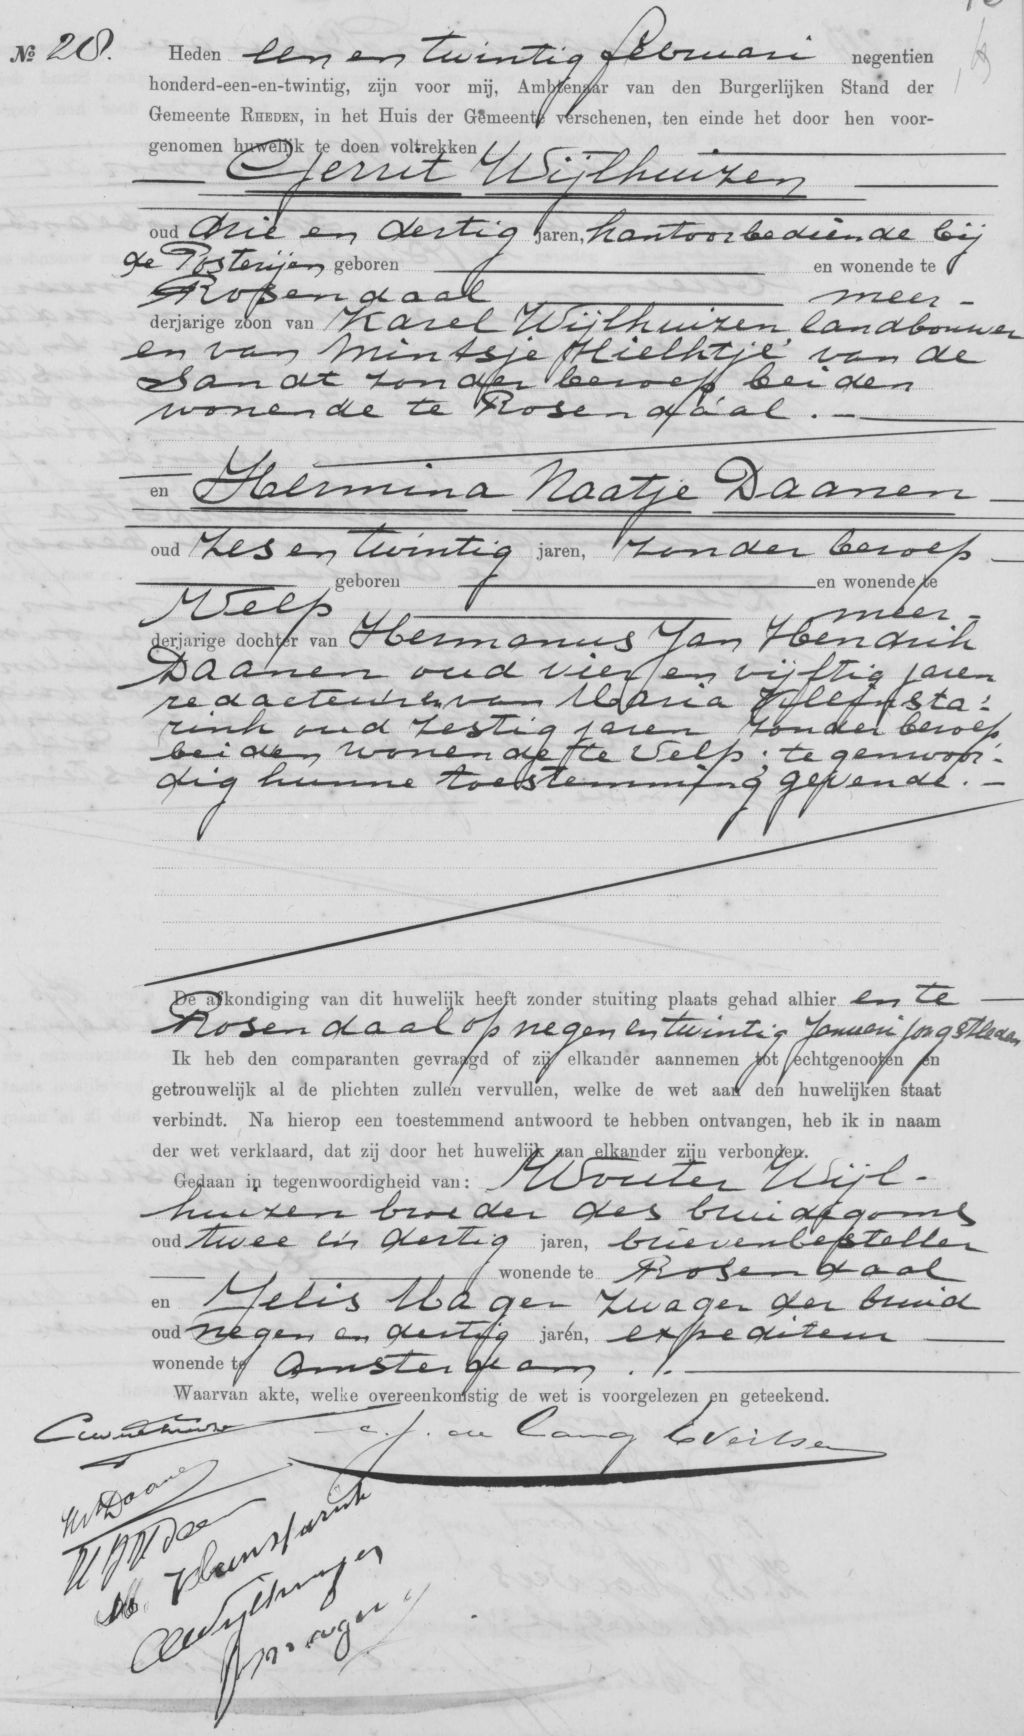 № 28. Heden een en twintig februari negentien
honderd-een-en-twintig, zijn voor mij, Ambtenaar van den Burgerlijken Stand der
Gemeente RHEDEN, in het Huis der Gemeente verschenen, ten einde het door hen voor-
genomen huwelijk te doen voltrekken
Gerrit Wijlhuizen
oud drie en dertig jaren, kantoorbediende bij
de Posterijen geboren en wonende te
Rosendaal meer-
derjarige zoon van Karel Wijlhuizen landbouwer
en van Mintsje Hielktje van de
Sandt zonder beroep beiden
wonende te Rosendaal. —
en Hermina Naatje Daanen
oud zes en twintig jaren, zonder beroep
geboren en wonende te
Velp meer-
derjarige dochter van Hermanus Jan Hendrik
Daanen oud vier en vijftig jaren
redacteur en van Maria Kleinsta-
rink oud zestig jaren zonder beroep
beiden wonende te Velp; tegenwoor-
dig hunne toestemming gevende. —
De afkondiging van dit huwelijk heeft zonder stuiting plaats gehad alhier en te
Rosendaal op negen en twintig Januari jongstleden
Ik heb den comparanten gevraagd of zij elkander aannemen tot echtgenooten en
getrouwelijk al de plichten zullen vervullen, welke de wet aan den huwelijken staat
verbindt. Na hierop een toestemmend antwoord te hebben ontvangen, heb ik in naam
der wet verklaard, dat zij door het huwelijk aan elkander zijn verbonden.
Gedaan in tegenwoordigheid van: Wouter Wijl-
huizen broeder des bruidegoms
oud twee en dertig jaren, brievenbesteller
wonende te Rosendaal
en Jelis Mager zwager der bruid
oud negen en dertig jaren, expediteur
wonende te Amsterdam.
Waarvan akte, welke overeenkomstig de wet is voorgelezen en geteekend.
HN Daanen
M. Kleinstarink
Wijlhuizen
J Mager